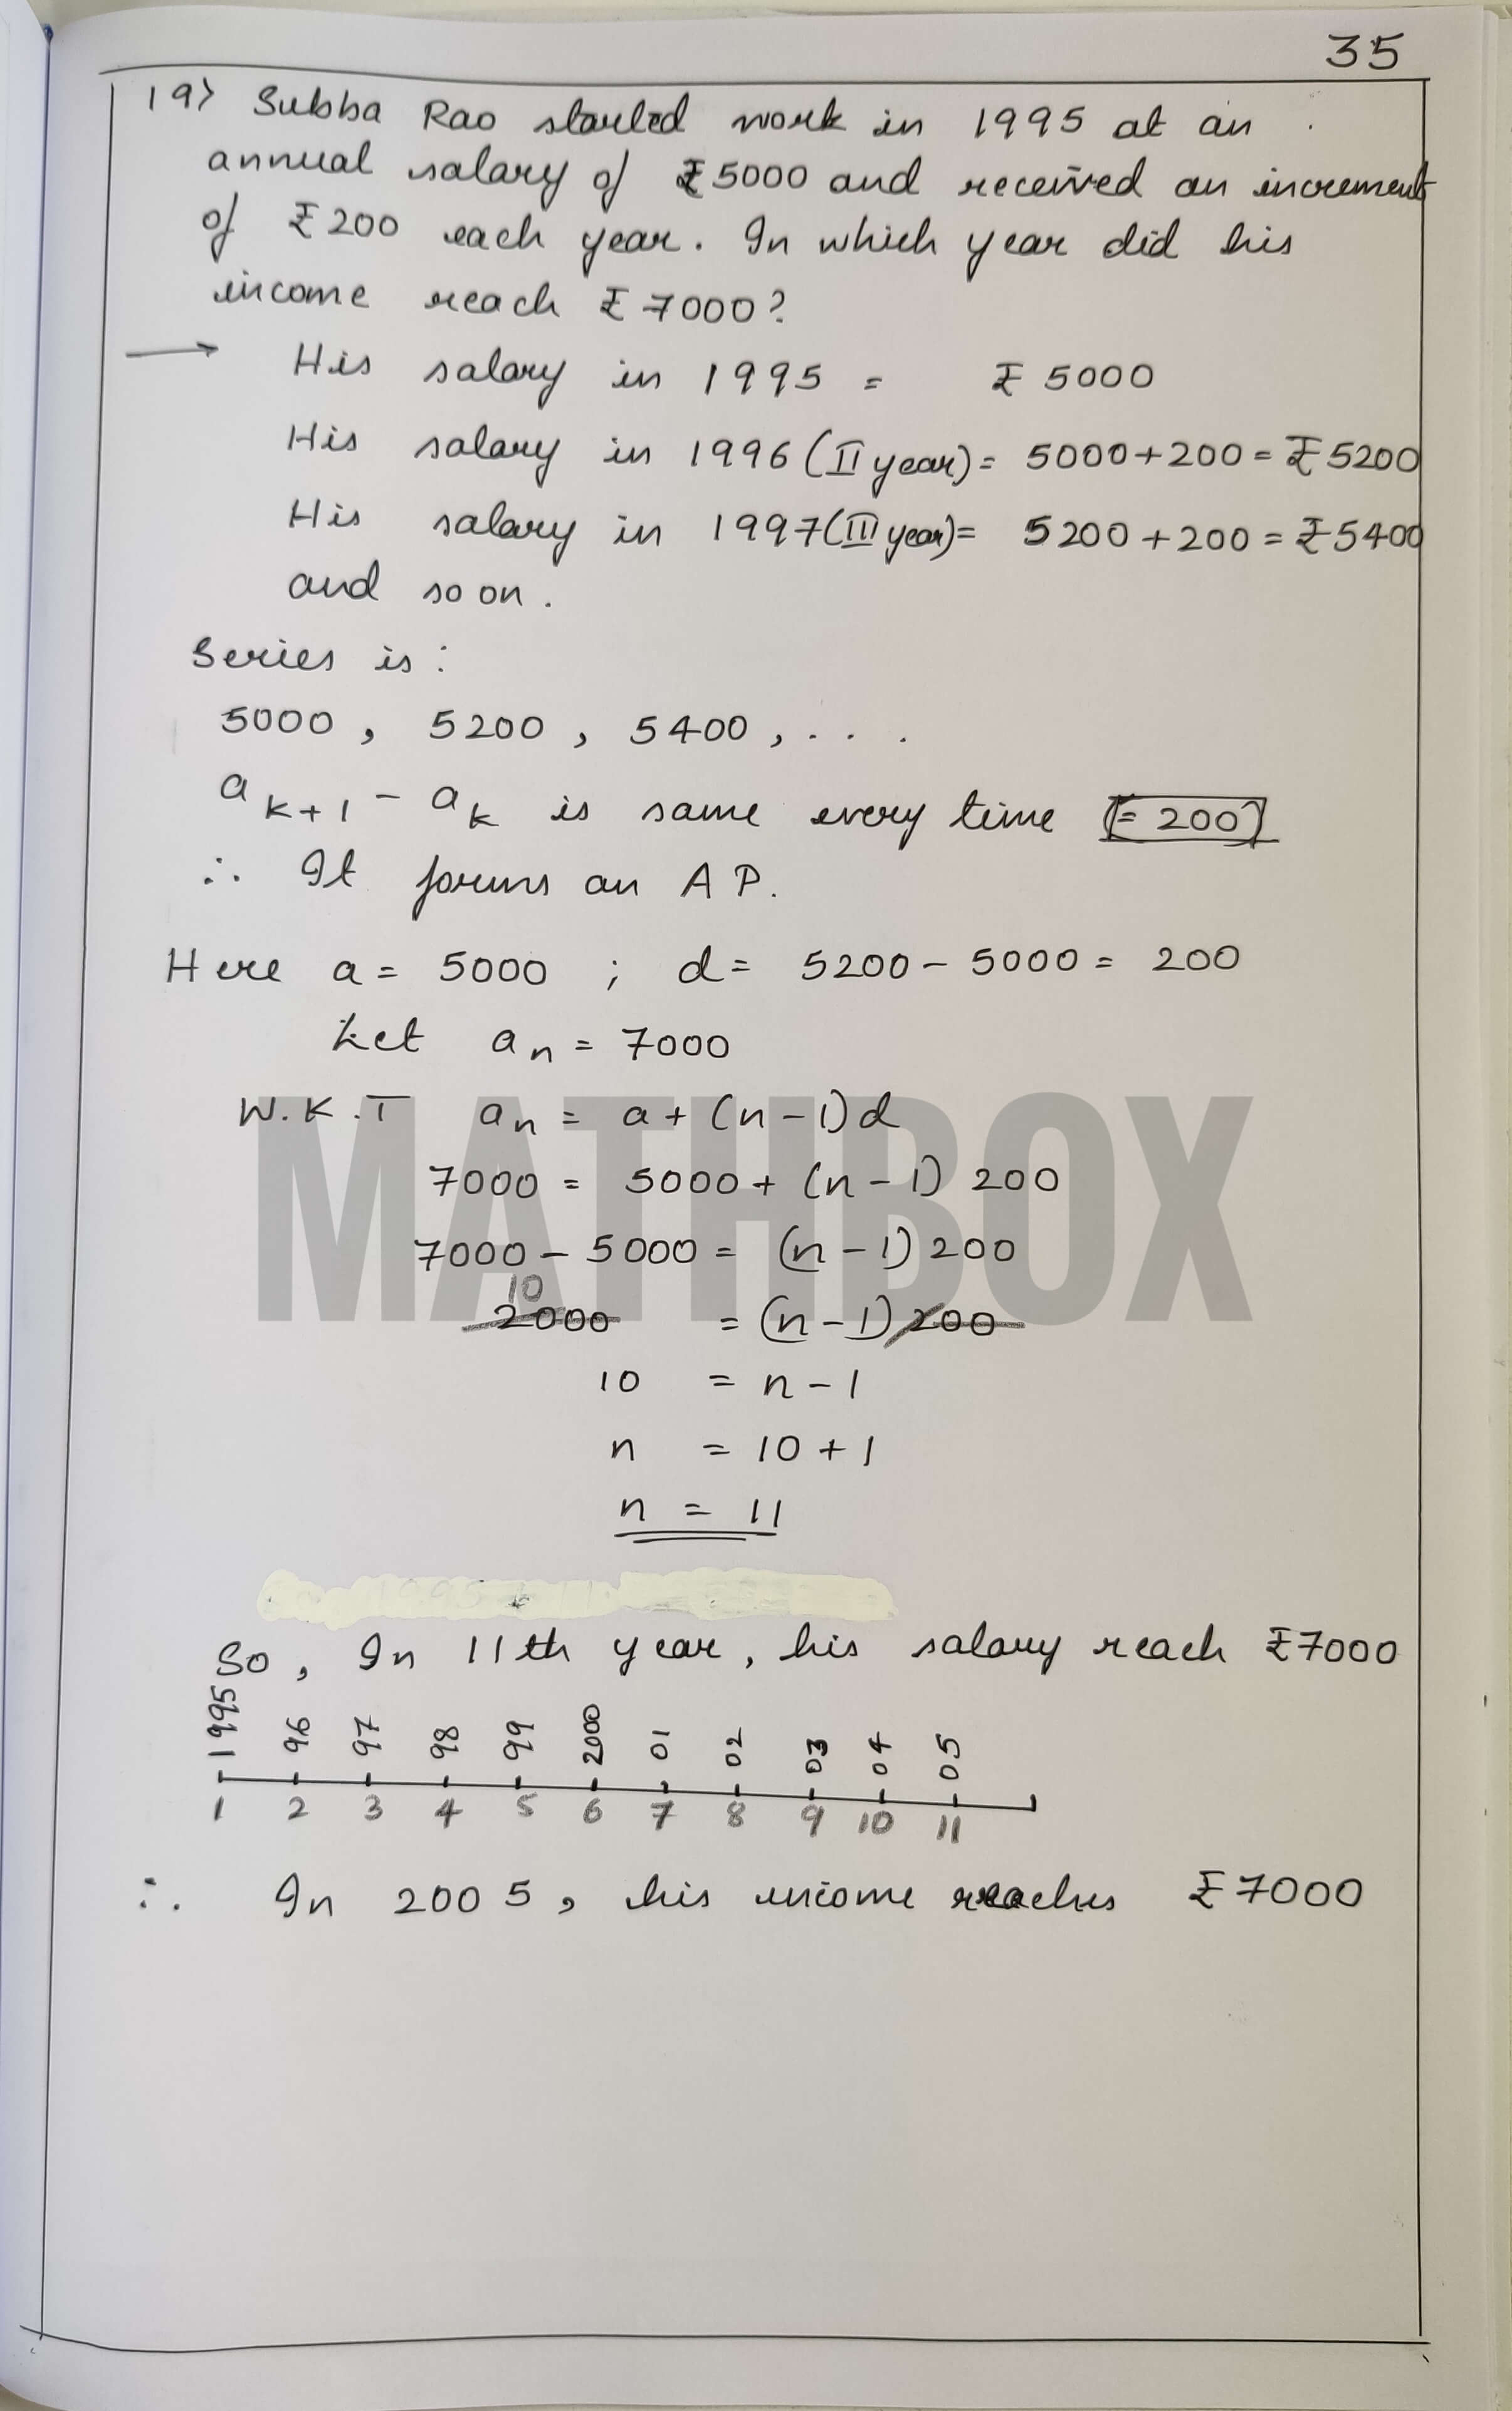 35
19> Subba Rao started work in 1995 at an
annual salary of ₹5000 and received an increment
of ₹200 each year. In which year did his
income reach ₹7000?
→ His salary in 1995 = ₹ 5000
His salary in 1996 (II year) = 5000+200 = ₹5200
His salary in 1997 (III year) = 5200+200 = ₹5400
and so on.
Series is :
5000 , 5200 , 5400 , . . .
a k+1 - a k is same every time (= 200)
∴ It forms an AP.
Here a = 5000 ; d = 5200 - 5000 = 200
Let an = 7000
W.K.T an = a + (n-1)d
7000 = 5000 + (n-1) 200
7000 - 5000 = (n-1) 200
10
2000 = (n-1) 200
10 = n-1
n = 10+1
n = 11
MATHBOX
So, In 11th year, his salary reach ₹7000
1995 96 97 98 99 2000 01 02 03 04 05
1 2 3 4 5 6 7 8 9 10 11
∴ In 2005, his income reaches ₹7000